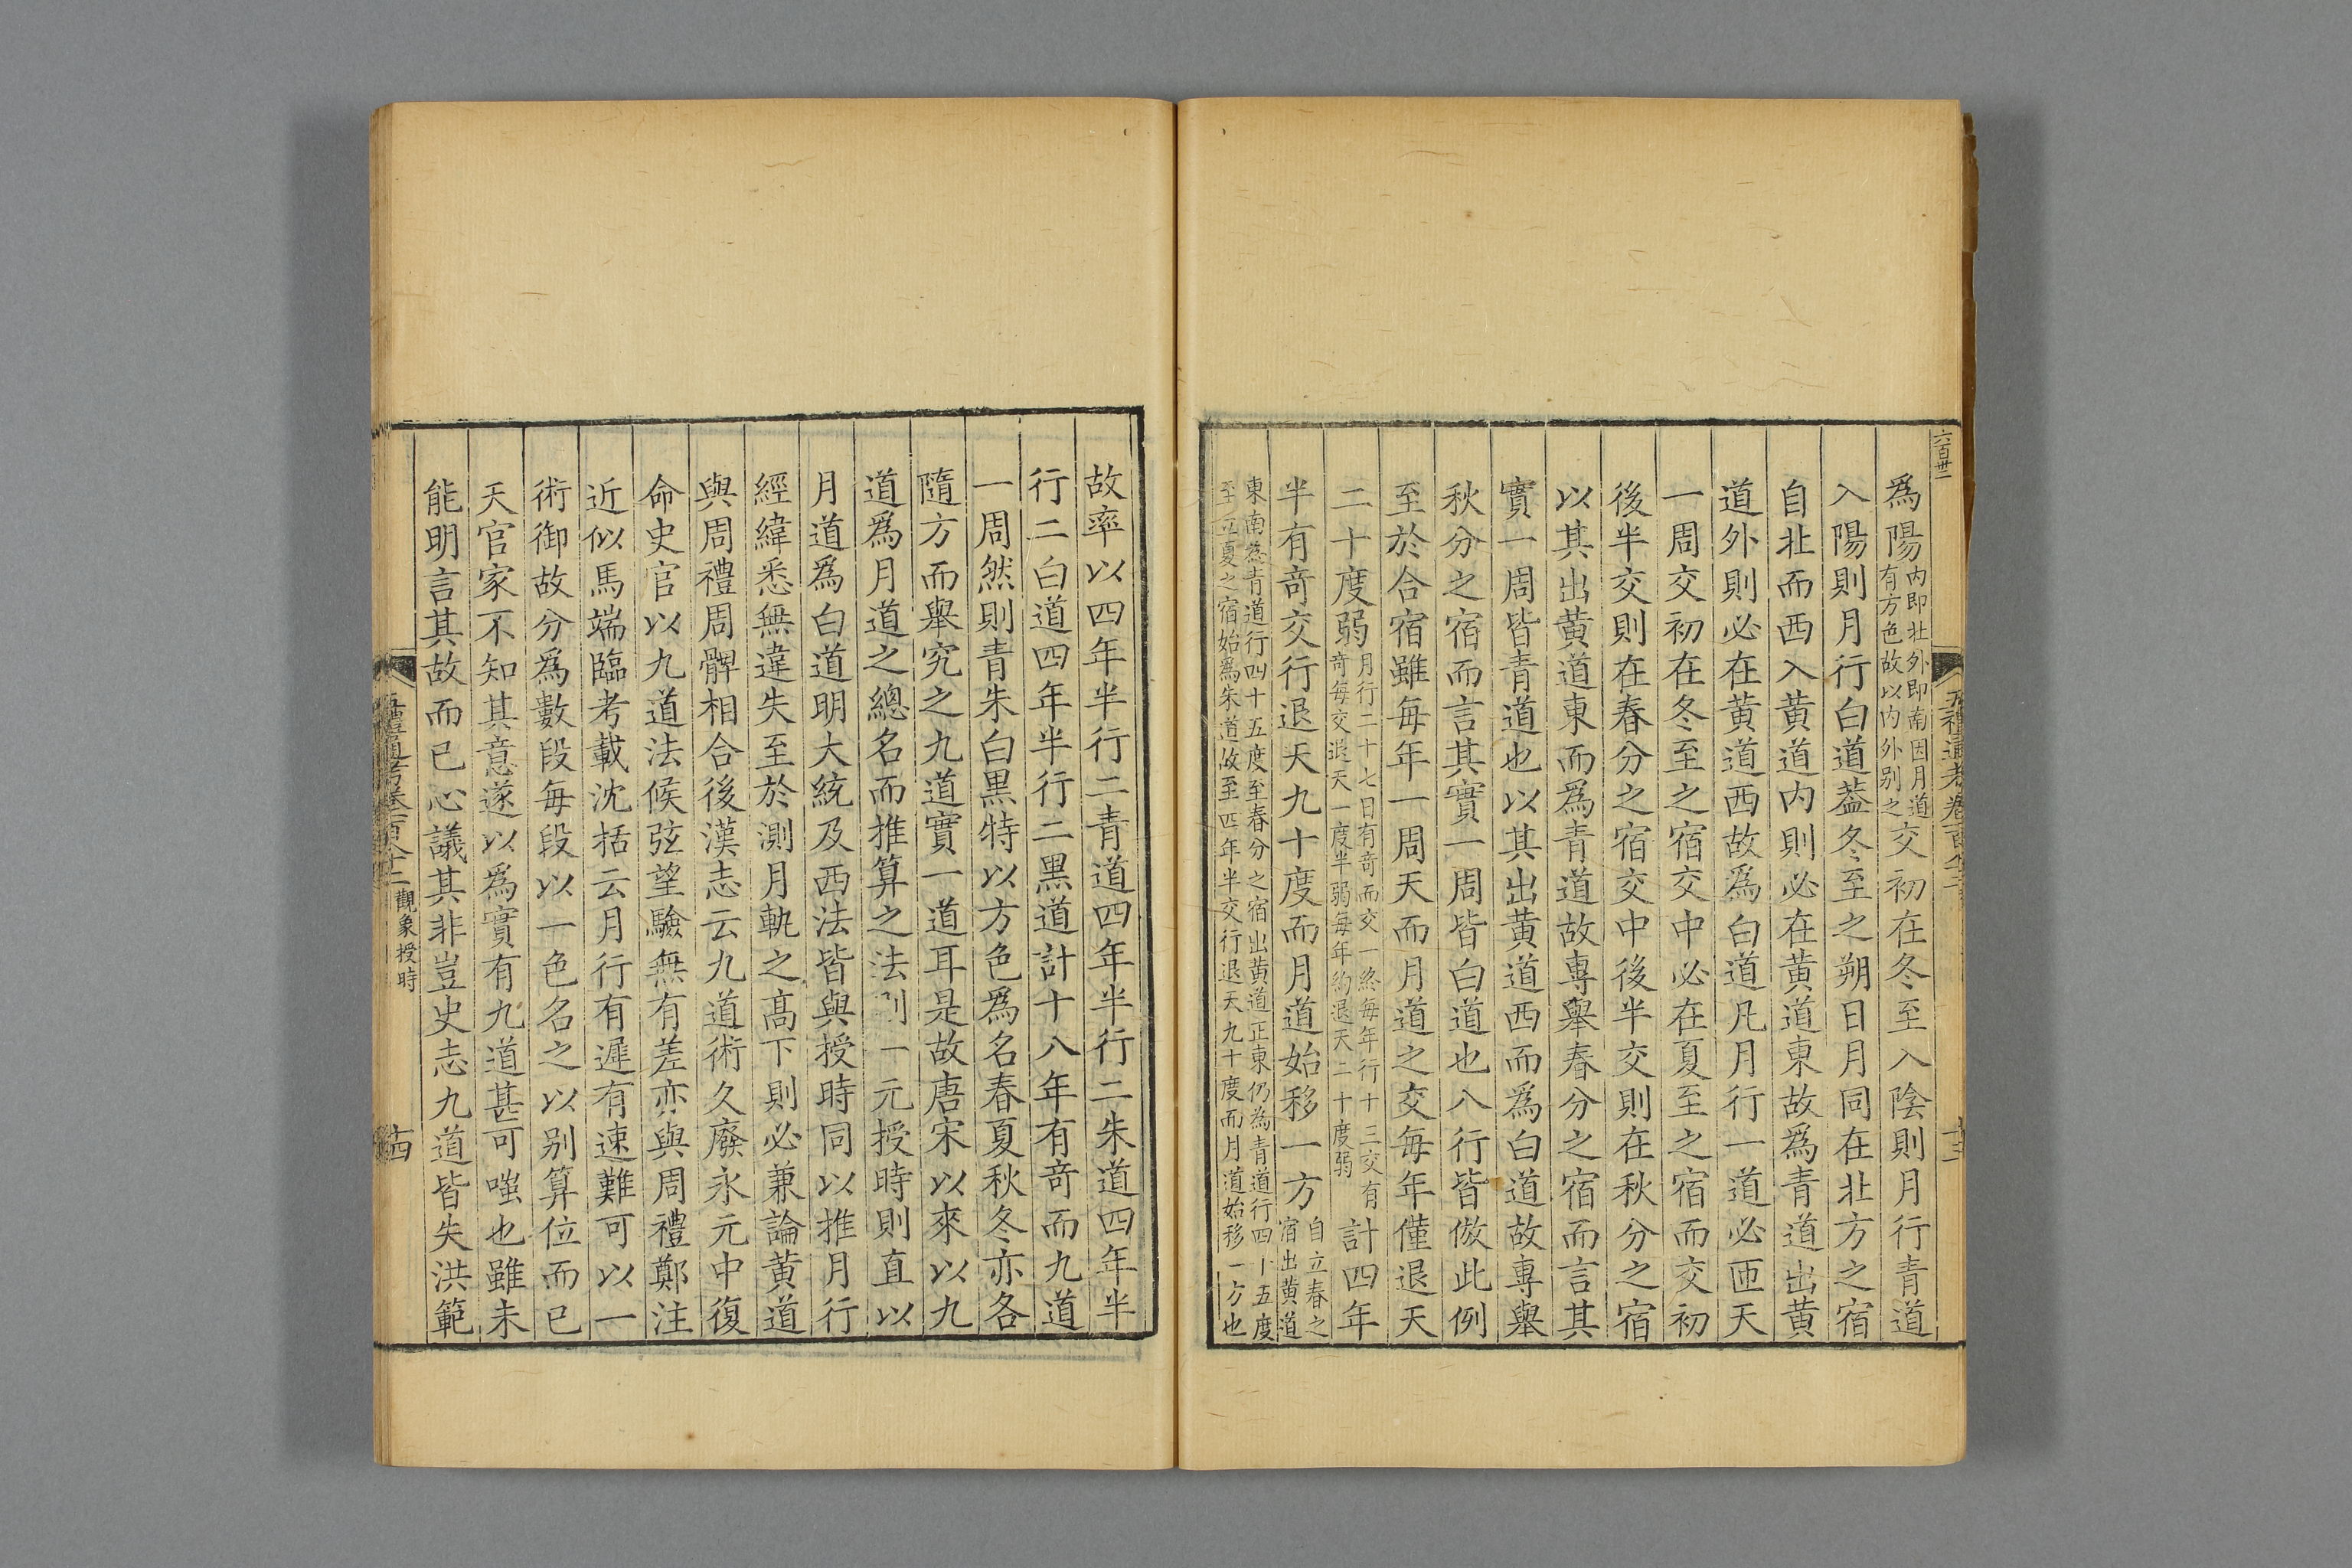 六百卅二
爲陽內即北外即南因月道有方色故以內外别之交初在冬至入陰則月行青道
入陽則月行白道葢冬至之朔日月同在北方之宿
自北而西入黄道內則必在黄道東故爲青道出黄
道外則必在黄道西故爲白道凡月行一道必匝天
一周交初在冬至之宿交中必在夏至之宿而交初
後半交則在春分之宿交中後半交則在秋分之宿
以其出黄道東而爲青道故專舉春分之宿而言其
實一周皆青道也以其出黄道西而爲白道故專舉
秋分之宿而言其實一周皆白道也八行皆倣此例
至於合宿雖每年一周天而月道之交每年僅退天
二十度弱月行二十七日有奇而交一終每年行十三交有奇每交退天一度半弱每年約退天二十度弱計四年
半有奇交行退天九十度而月道始移一方自立春之宿出黄道
東南爲青道行四十五度至春分之宿出黄道正東仍為青道行四十五度
至立夏之宿始爲朱道故至四年半交行退天九十度而月道始移一方也
故率以四年半行二青道四年半行二朱道四年半
行二白道四年半行二黑道計十八年有奇而九道
一周然則青朱白黑特以方色爲名春夏秋冬亦各
隨方而舉究之九道實一道耳是故唐宋以來以九
道爲月道之總名而推算之法則一元授時則直以
月道爲白道明大統及西法皆與授時同以推月行
經緯悉無違失至於測月軌之髙下則必兼論黄道
與周禮周髀相合後漢志云九道術久廢永元中復
命史官以九道法候弦望驗無有差亦與周禮鄭注
近似馬端臨考載沈括云月行有遲有速難可以一
術御故分爲數段每段以一色名之以别算位而已
天官家不知其意遂以爲實有九道甚可嗤也雖未
能明言其故而已心議其非豈史志九道皆失洪範
五禮通考卷一百八十二 觀象授時 十四